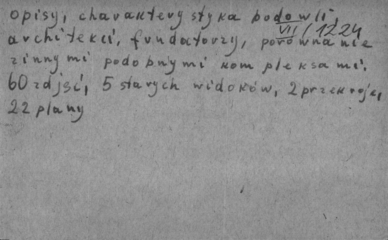 opisy, charakterystyka budowli,
VII/1224
architekci, fundatorzy, porównanie
z innymi podobnymi kompleksami.
60 zdjęć, 5 starych widoków, 2 przekroje,
22 plany